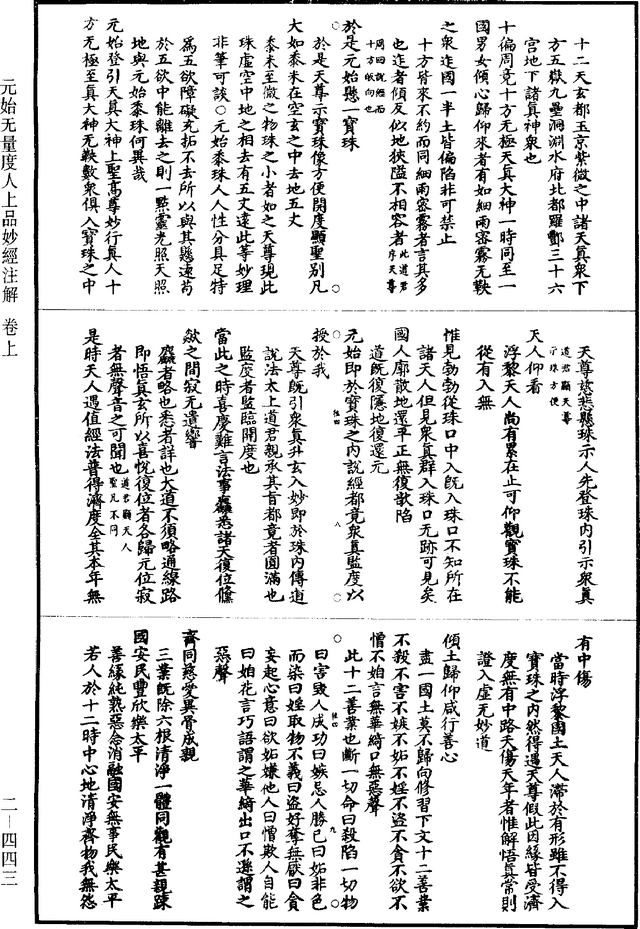 元始无量度人上品妙經注解　卷上
二—四四三
十二天玄都玉京紫微之中諸天真衆下
方五嶽九壘洞淵水府北都羅酆三十六
宮地下諸真神衆也
十偏周竟十方无極天真大神一時同至一
國男女傾心歸仰來者有如細雨密霧无鞅
之衆迮國一半土皆偏陷非可禁止
十方皆來不約而同細雨密霧者言其多
也迮者傾反似地狹隘不相容者此道君序天尊
周回說經而
十方皈向也
於是元始懸一寶珠
於是天尊示寶珠像方便開度顯聖別凡
大如黍米在空玄之中去地五丈
黍米至微之物珠之小者如之天尊現此
珠虛空中地之相去有五丈遠此等妙理
非筆可談〇元始黍珠人人性分具足特
爲五欲障礙充拓不去所以與其懸遠苟
於五欲中能離去之則一點靈光照天照
地與元始黍珠何異哉
元始登引天真大神上聖高尊妙行真人十
方无極至真大神无鞅數衆俱入寶珠之中
天尊慈悲懸珠示人先登珠内引示衆真
道君顯天尊
示珠方便
天人仰看
浮黎天人尚有累在止可仰觀寶珠不能
從有入無
惟見勃勃從珠口中入既入珠口不知所在
諸天人但見衆真群入珠口无跡可見矣
國人廓散地還平正無復欹陷
道既復隱地復還元
元始即於寶珠之内說經都竟衆真監度以
授於我
天尊既引衆真升玄入妙即於珠内傳道
說法太上道君親承其旨都竟者圓滿也
監度者監臨開度也
當此之時喜慶難言法事麤悉諸天復位儵
欻之間寂无遺響
麤者略也悉者詳也大道不須略通線路
即悟真玄所以喜悅復位者各歸元位寂
者無聲音之可聞也道君顯天人聖凡不同
是時天人遇值經法普得濟度全其本年無
有中傷
當時浮黎國土天人滯於有形雖不得入
寶珠之内然得遇天尊假此因緣皆受濟
度無有中路夭傷天年者惟解悟真常則
證入虛无妙道
傾土歸仰咸行善心
盡一國土莫不歸向修習下文十二善業
不殺不害不嫉不妬不婬不盜不貪不欲不
憎不㚦言無華綺口無惡聲
此十二善業也斷一切命曰殺陷一切物
曰害毀人成功曰嫉忌人勝已曰妬非色
而染曰婬取物不義曰盜好奪無厭曰貪
妄起心意曰欲妬嫌他人曰憎欺人自能
曰㚦花言巧語謂之華綺出口不遜謂之
惡聲
齊同慈愛異骨成親
三業既除六根清淨一體同觀有甚親踈
國安民豐欣樂太平
善緣純熟惡念消融國安無事民樂太平
若人於十二時中心地清淨齊物我無怨